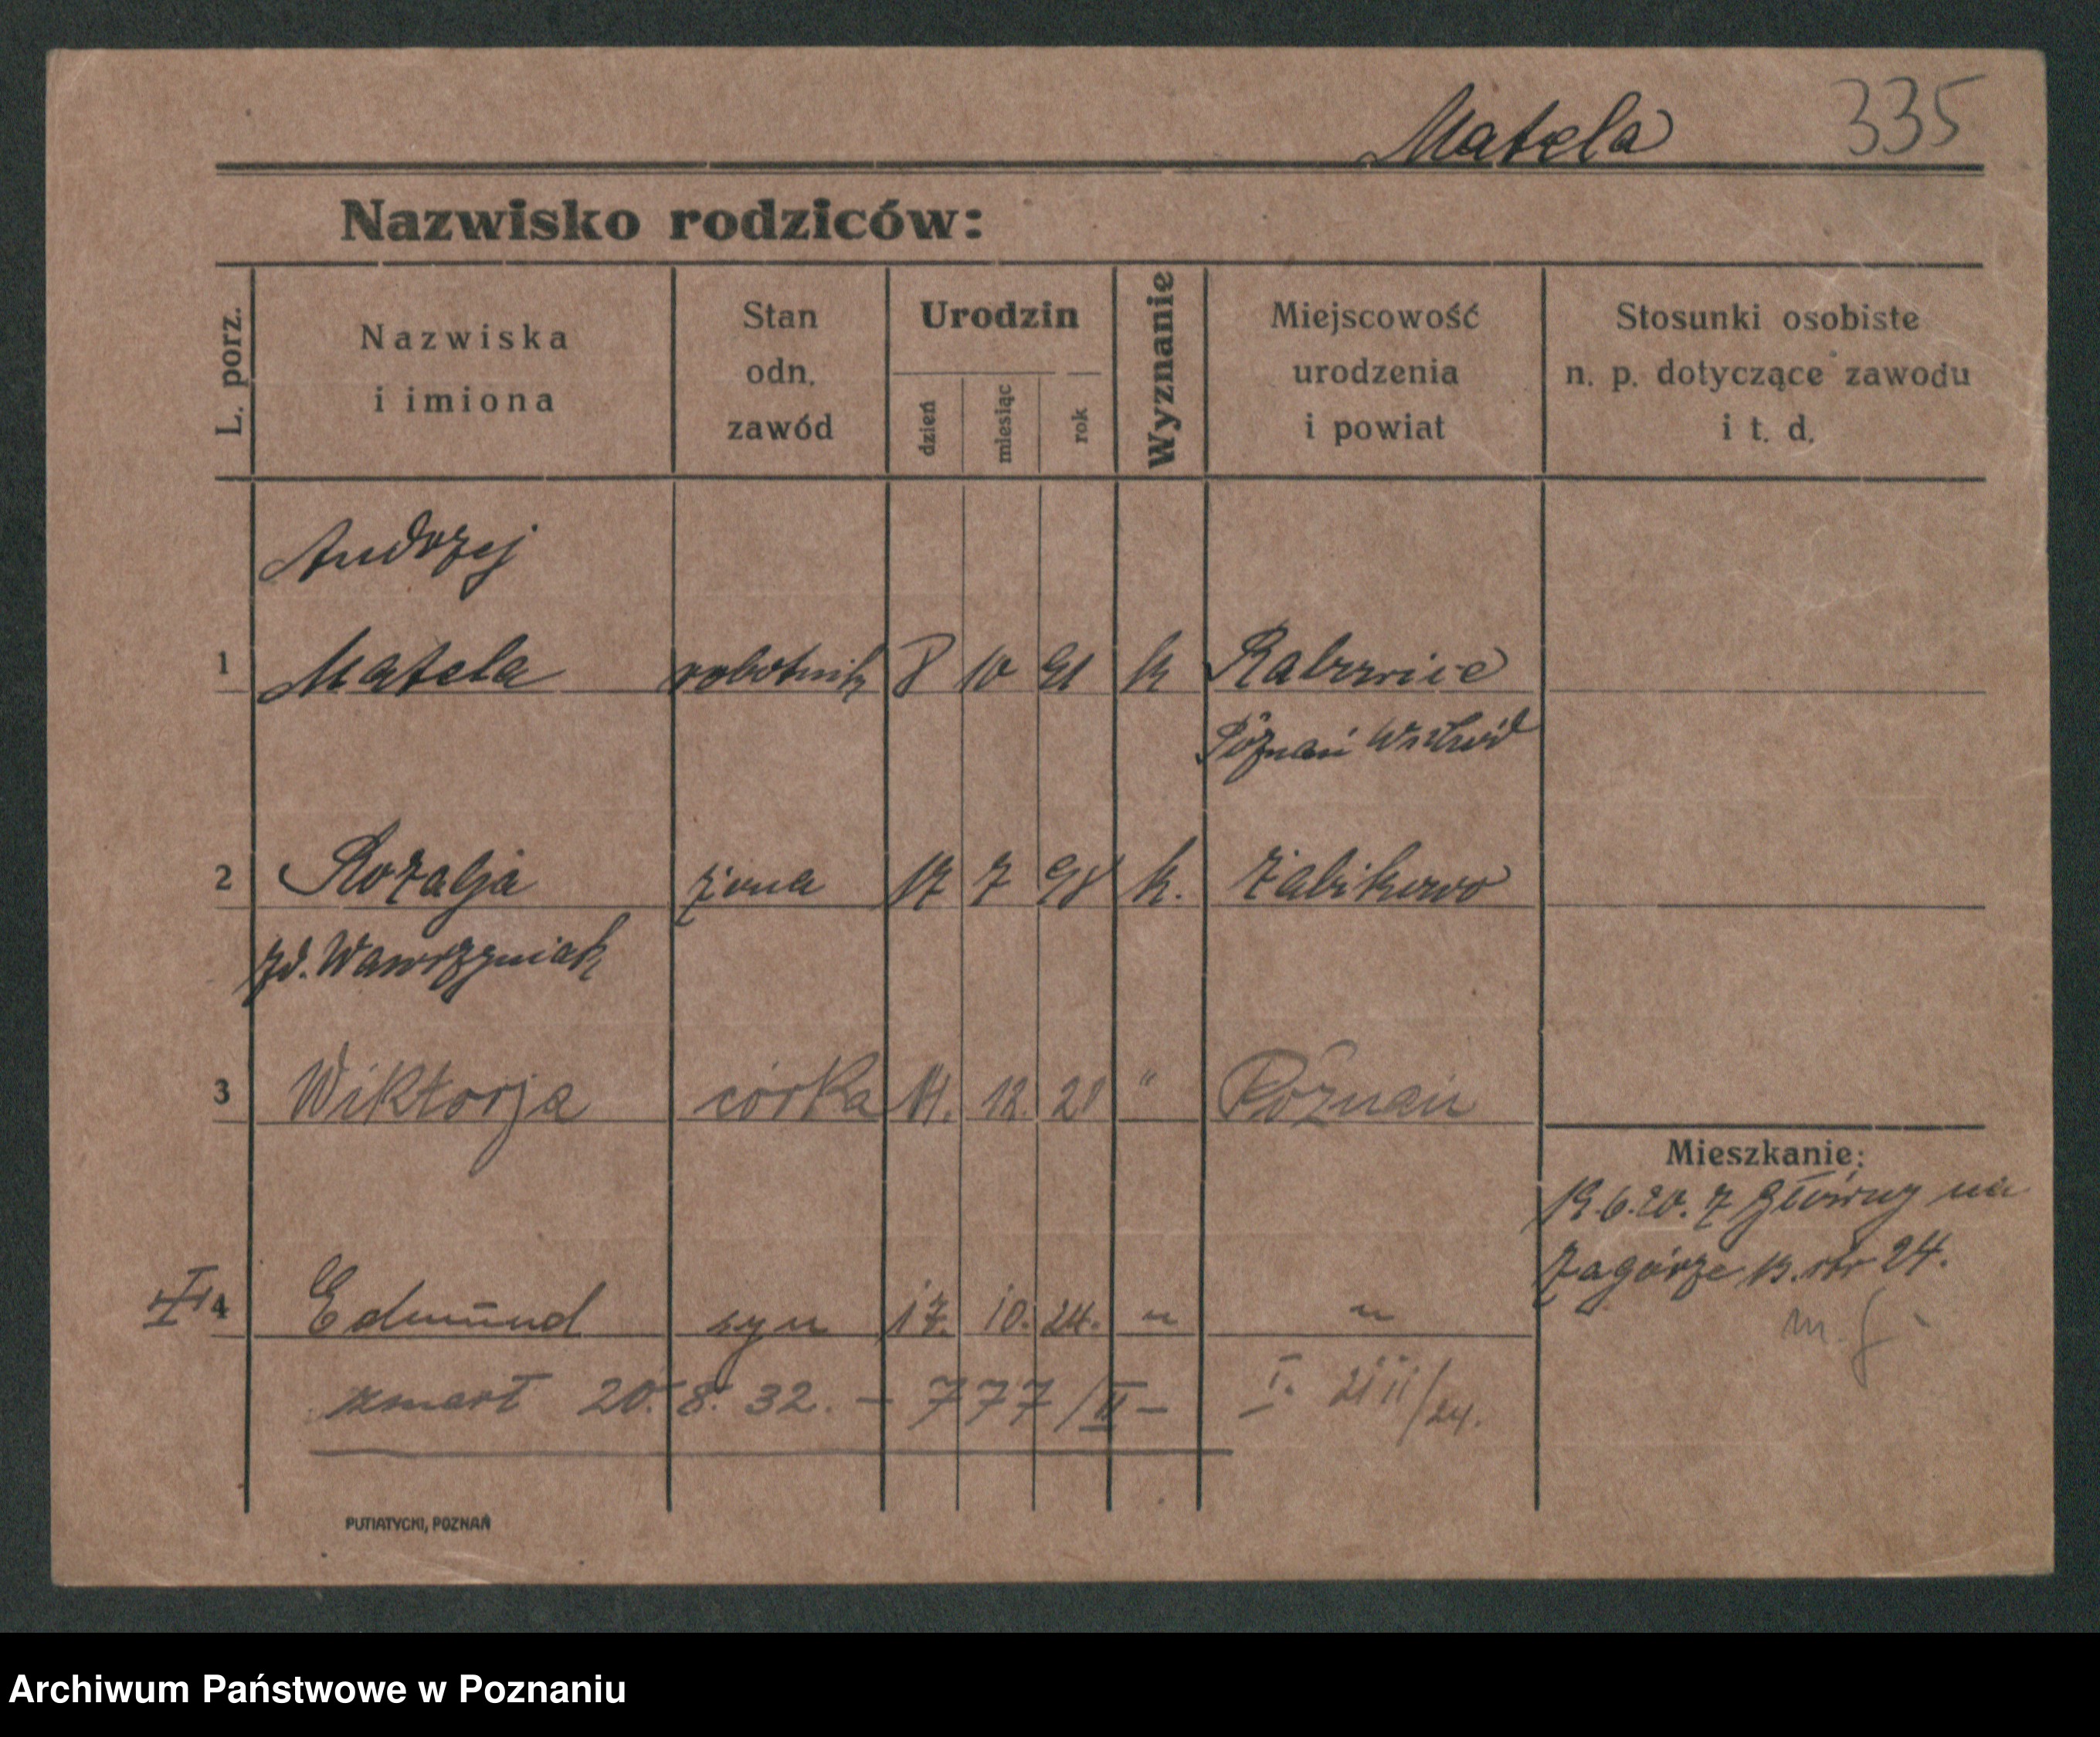 Matela 335
Nazwisko rodziców:
L. porz.
Nazwiska i imiona
Stan odn. zawód
Urodzin
dzień miesiąc rok
Wyznanie
Miejscowość urodzenia i powiat
Stosunki osobiste n. p. dotyczące zawodu i t. d.
Andrzej
1 Matela robotnik 8 10 91 k Rabowice
Poznań Wschód
2 Rozalja żona 17 7 98 k. Żabikowo
zd. Wawrzyniak
3 Wiktorja córka 12. 21 " Poznań
Mieszkanie:
19.6.20. z Główny na
Zagórze 13. str 24.
4 Edmund syn 17. 10. 24. " "
zmarł 20. 8. 32. – 777/II – I.
PUTIATYCKI, POZNAŃ
Archiwum Państwowe w Poznaniu